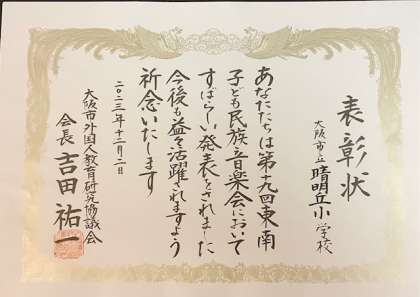 表彰状
大阪市立晴明丘小学校
あなたたちは第十九回東南
子ども民族音楽会において
すばらしい発表をされました
今後も益々活躍されますよう
祈念いたします
二〇二三年十二月二日
大阪市外国人教育研究協議会
会長 吉田祐一